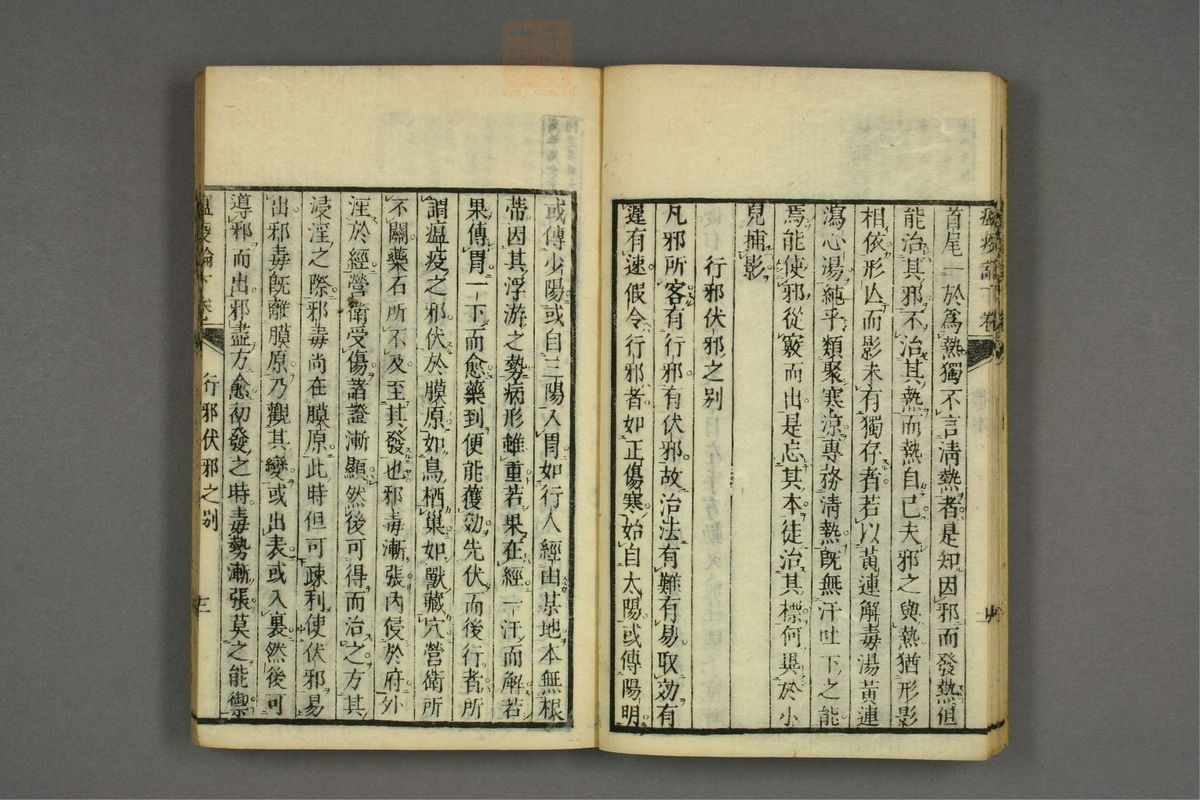 首尾一於爲熱獨不言淸熱者是知因邪而發熱但
能治其邪不治其熱而熱自已夫邪之與熱猶形影
相依形亾而影未有獨存者若以黃連解毒湯黃連
瀉心湯純乎類聚寒涼專務淸熱旣無汗吐下之能
焉能使邪從竅而出是忘其本徒治其標何異於小
兒捕影
行邪伏邪之别
凡邪所客有行邪有伏邪故治法有難有易取効有
遲有速假令行邪者如正傷寒始自太陽或傳陽明
或傳少陽或自三陽入胃如行人經由某地本無根
蒂因其浮游之勢病形雖重若果在經一汗而解若
果傳胃一下而愈藥到便能獲効先伏而後行者所
謂瘟疫之邪伏於膜原如鳥栖巢如獸藏穴營衛所
不關藥石所不及至其發也邪毒漸張內侵於府外
淫於經營衛受傷諸證漸顯然後可得而治之方其
浸淫之際邪毒尚在膜原此時但可疎利使伏邪易
出邪毒旣離膜原乃觀其變或出表或入裏然後可
導邪而出邪盡方愈初發之時毒勢漸張莫之能禦
行邪伏邪之别